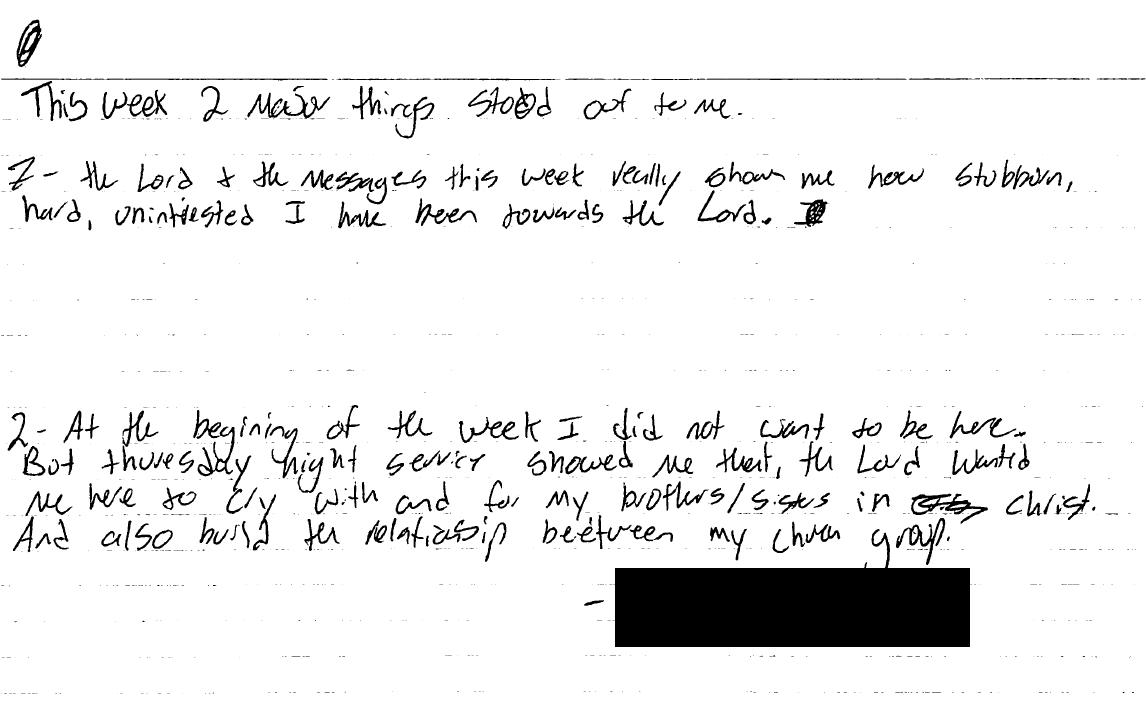 This week 2 Major things stood out to me.
1- the Lord & the Messages this week really shown me how stubborn,
hard, unintrested I have been towards the Lord.
2- At the begining of the week I did not want to be here.
But thuresday night service showed me that, the Lord wanted
me here to cry with and for my brothers/sisters in Christ.
And also build the relatiossip beetween my church group.
-